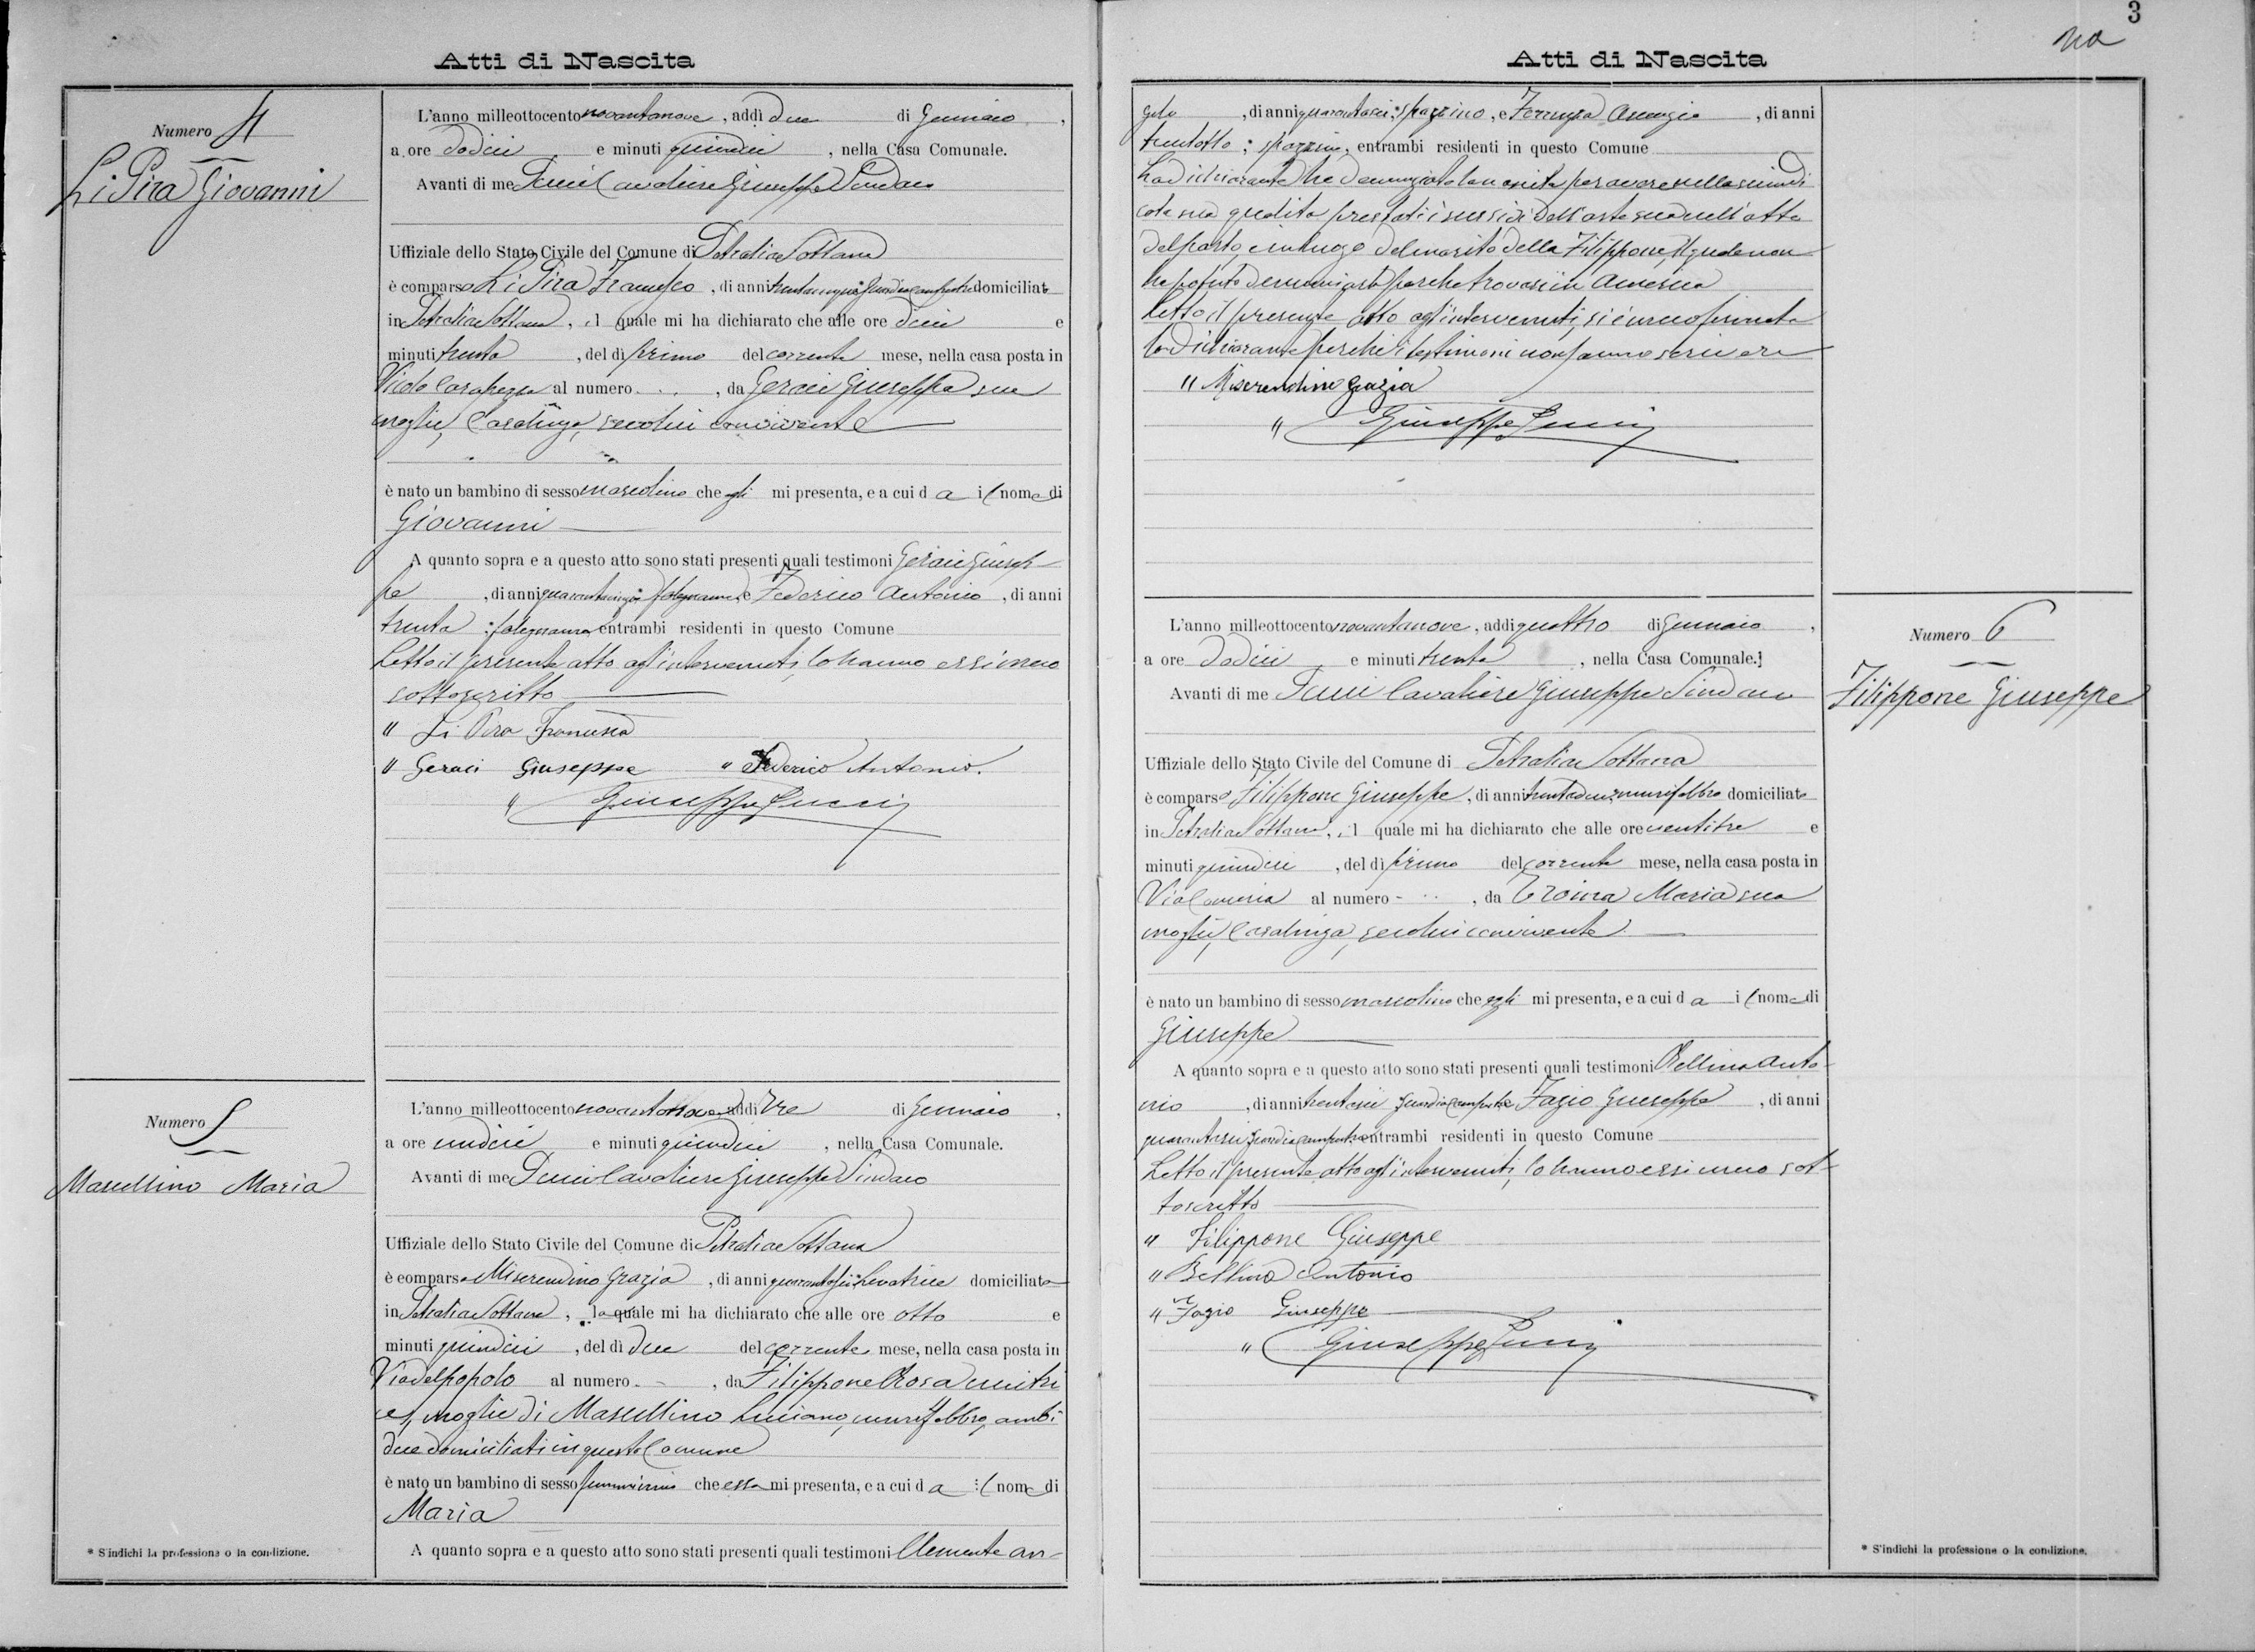 Atti di Nascita
Numero 4
Li Pira Giovanni
L'anno milleottocento novantanove, addì due di Gennaio,
a ore dodici e minuti quindici, nella Casa Comunale.
Avanti di me Pucci Cavaliere Giuseppe Sindaco
Uffiziale dello Stato Civile del Comune di Petralia Sottana
è comparso Li Pira Francesco, di anni trentacinque: Guardia campestre domiciliato
in Petralia Sottana, il quale mi ha dichiarato che alle ore dieci e
minuti trenta, del dì primo del corrente mese, nella casa posta in
Vicolo Carapezza al numero . . . , da Geraci Giuseppa sua
moglie, Casalinga, secolui convivente
è nato un bambino di sesso mascolino che egli mi presenta, e a cui dà il nome di
Giovanni
A quanto sopra e a questo atto sono stati presenti quali testimoni Geraci Giusep-
pe, di anni quarantacinque falegname, e Federico Antonio, di anni
trenta: falegname, entrambi residenti in questo Comune
Letto il presente atto agl'intervenuti, lo hanno essi meco
sottoscritto
" Li Pira Francesco
" Geraci Giuseppe " Federico Antonio.
" Giuseppe Pucci
Numero 5
Mascellino Maria
L'anno milleottocento novantanove, addì tre di Gennaio,
a ore undici e minuti quindici, nella Casa Comunale.
Avanti di me Pucci Cavaliere Giuseppe Sindaco
Uffiziale dello Stato Civile del Comune di Petralia Sottana
è comparsa Miserendino Grazia, di anni quarantasei: Levatrice domiciliata
in Petralia Sottana, la quale mi ha dichiarato che alle ore otto e
minuti quindici, del dì due del corrente mese, nella casa posta in
Via del popolo al numero . . , da Filippone Rosa cucitri
ce, moglie di Mascellino Luciano, murifabbro, ambi
due domiciliati in questo Comune
è nato un bambino di sesso femminino che essa mi presenta, e a cui dà il nome di
Maria
A quanto sopra e a questo atto sono stati presenti quali testimoni Clemente An-
* S'indichi la professione o la condizione.
3
Atti di Nascita
gelo, di anni quarantasei: spazzino, e Ferruzza Ascenzio, di anni
trentotto: spazzino, entrambi residenti in questo Comune
La dichiarante ha denunziato la nascita per avere nella suindi
cata sua qualità prestati i sussidi dell'arte sua nell'atto
del parto, e in luogo del marito della Filippone, il quale non
ha potuto denunziarlo perchè trovasi in America
Letto il presente atto agl'intervenuti, si è meco firmata
la dichiarante perchè i testimoni non sanno scrivere
" Miserendino Grazia
" Giuseppe Pucci
Numero 6
Filippone Giuseppe
L'anno milleottocento novantanove, addì quattro di Gennaio,
a ore dodici e minuti trenta, nella Casa Comunale.
Avanti di me Pucci Cavaliere Giuseppe Sindaco
Uffiziale dello Stato Civile del Comune di Petralia Sottana
è comparso Filippone Giuseppe, di anni trentadue: murifabbro domiciliato
in Petralia Sottana, il quale mi ha dichiarato che alle ore ventitre e
minuti quindici, del dì primo del corrente mese, nella casa posta in
Via al numero - . . , da Troina Maria sua
moglie, Casalinga, secolui convivente
è nato un bambino di sesso mascolino che egli mi presenta, e a cui dà il nome di
Giuseppe
A quanto sopra e a questo atto sono stati presenti quali testimoni Bellina Anto-
nio, di anni trentasei Guardia campestre Fazio Giuseppe, di anni
quarantasei Guardia campestre entrambi residenti in questo Comune
Letto il presente atto agl'intervenuti, lo hanno essi meco sot-
toscritto
" Filippone Giuseppe
" Bellina Antonio
" Fazio Giuseppe
" Giuseppe Pucci
* S'indichi la professione o la condizione.